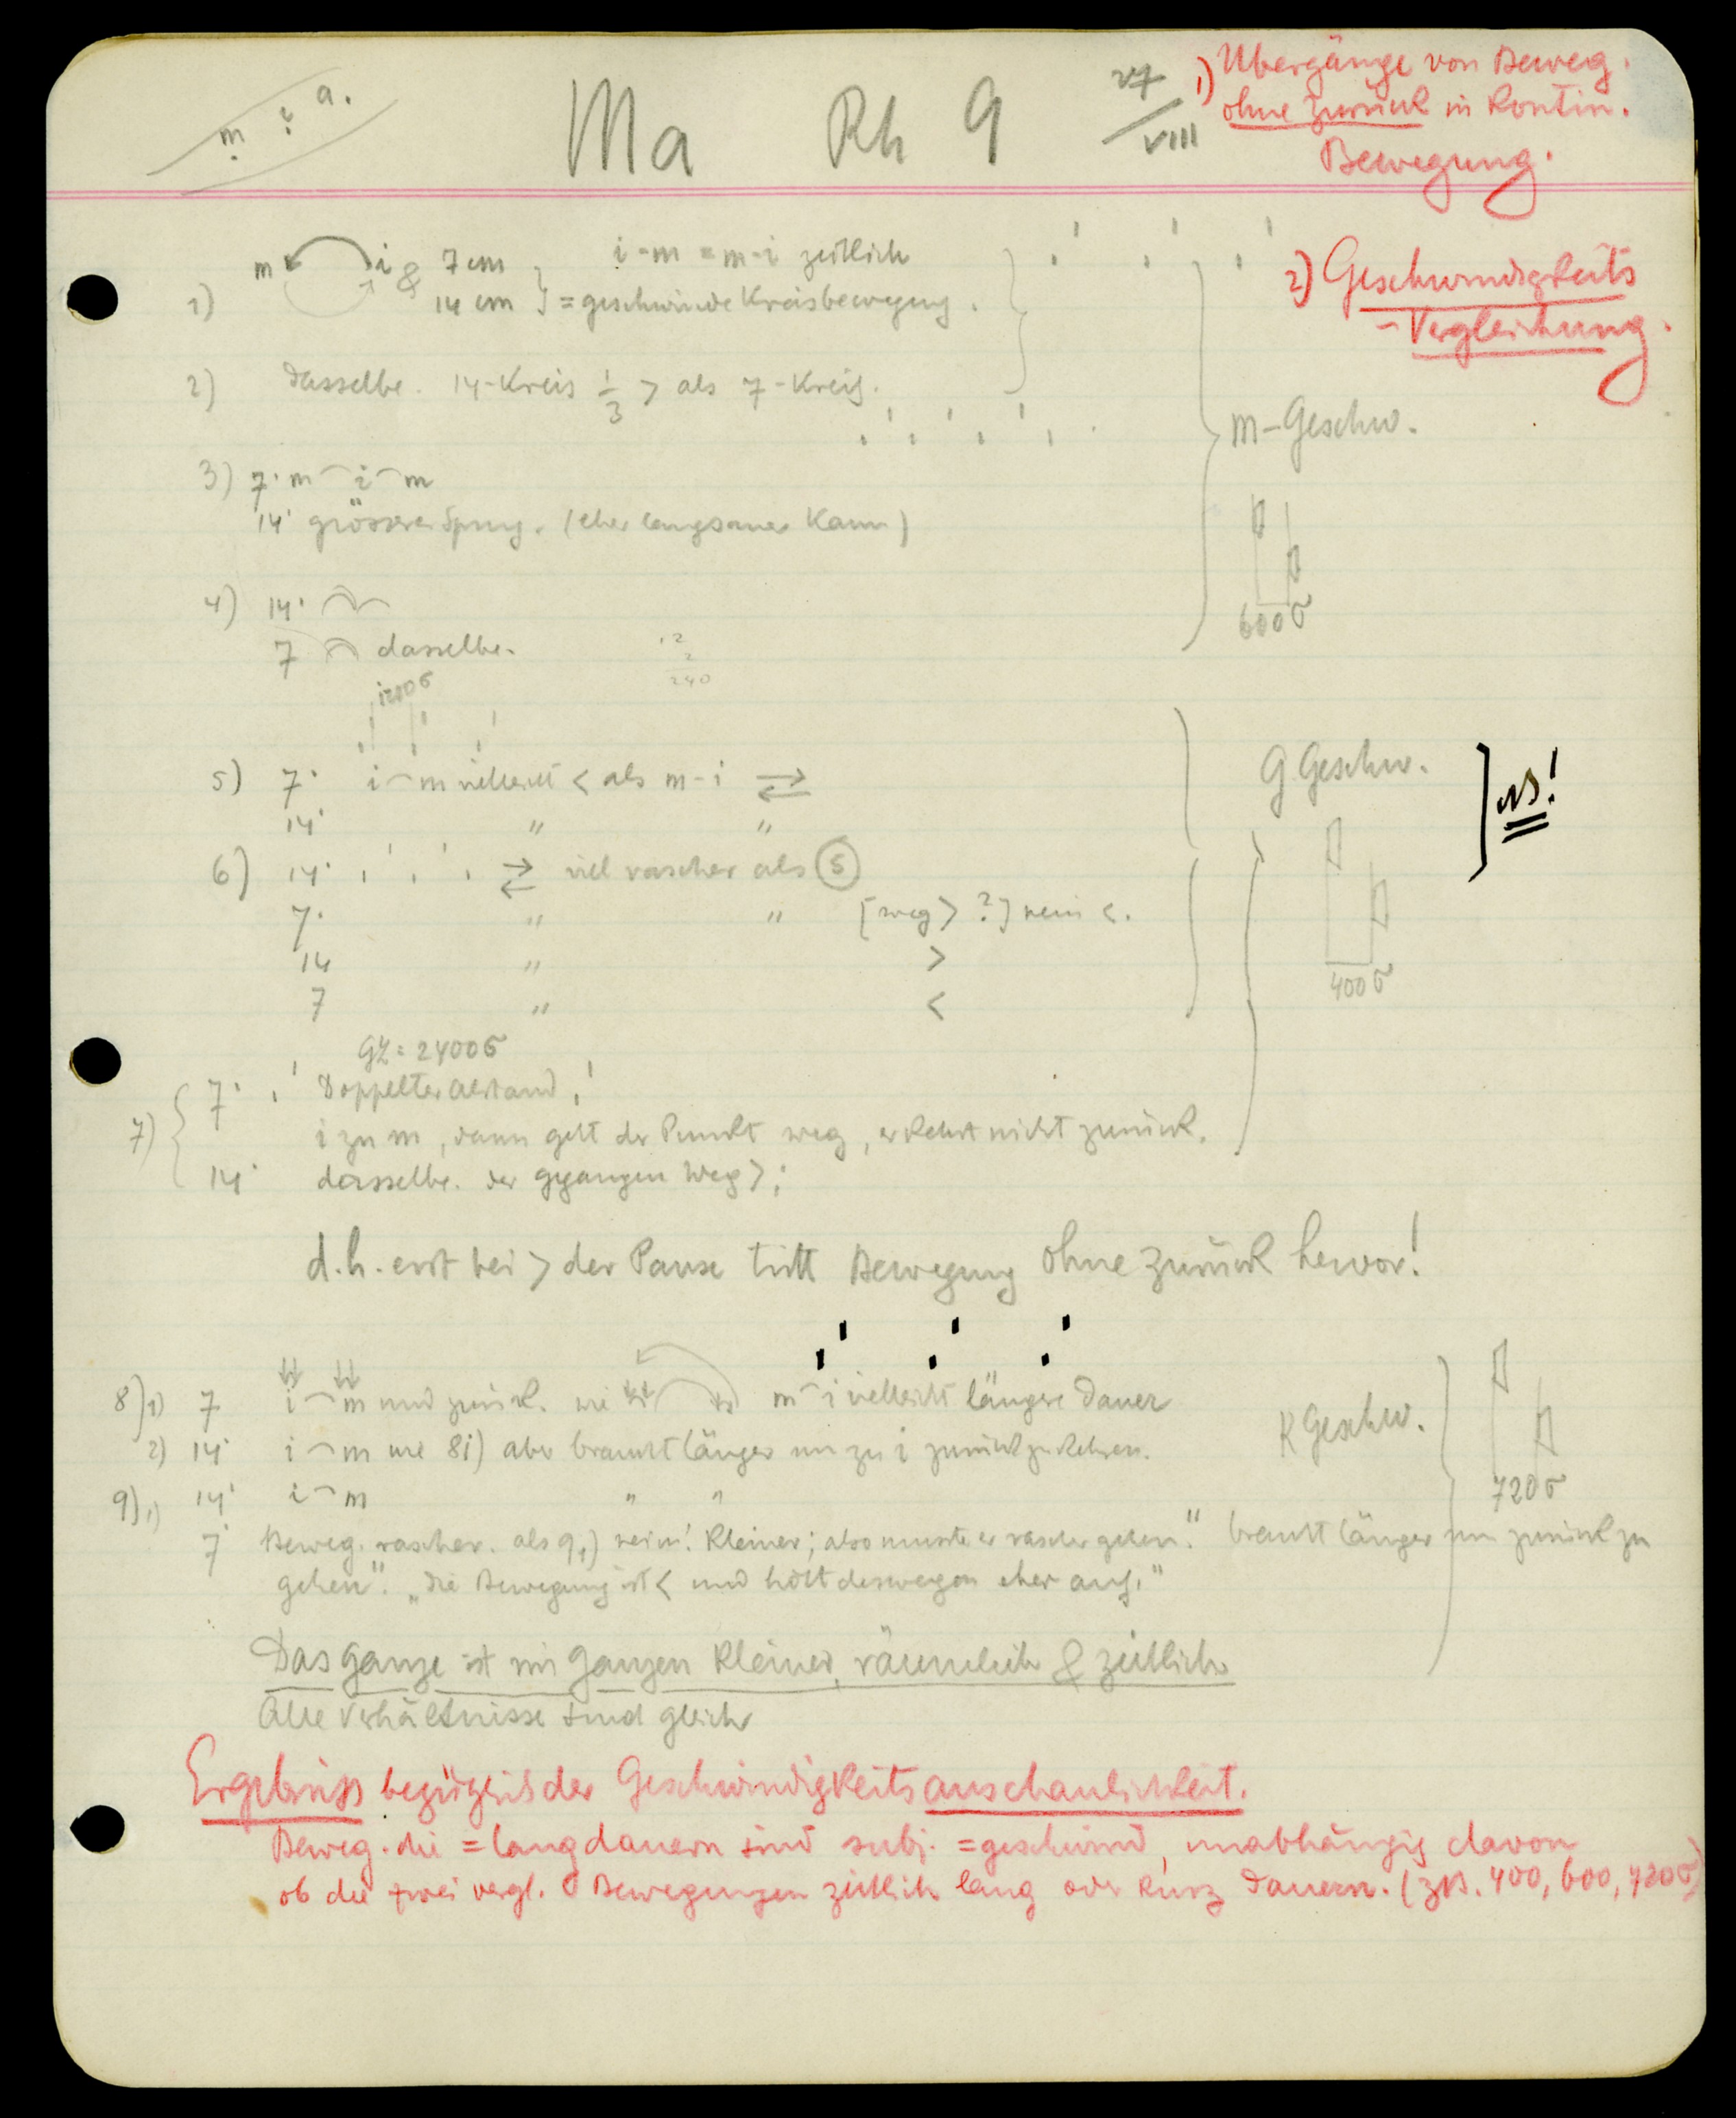 m i a.
Ma Rh 9 27/VIII
1) Übergänge von Beweg.
ohne zurück in Kontin.
Bewegung.
2) Geschwindigkeits
-Vergleichung.
1) m i & 7 cm } i-m = m-i zeitlich
14 cm } = geschwinde Kreisbewegung.
2) dasselbe. 14-Kreis 1/3 > als 7-Kreis.
m-Geschw.
3) 7· m⌒i⌒m
14· grösserer Sprung. (eher langsamer kaum)
600σ
4) 14·
7 dasselbe.
12
2
240
1200σ
5) 7· i⌒m vielleicht < als m-i ⇄
14· " "
G Geschw.
NB!
6) 14· ⇄ viel rascher als ⑤
7· " " [weg > ?] nein <.
14 " >
7 " <
400σ
GZ = 2400σ
7) 7· Doppelter Abstand
i zu m, dann geht der Punkt weg, er kehrt nicht zurück.
14· dasselbe. der gegangen Weg >;
d.h. erst bei > der Pause tritt Bewegung ohne zurück hervor!
8) 1) 7 i⌒m und zurück. wie m⌒i vielleicht längere Dauer
2) 14· i⌒m wie 81) aber braucht länger um zu i zurückzukehren.
K Geschw.
720σ
9) 1) 14· i⌒m " "
7· Beweg. rascher. als 9,1) nein! kleiner; also musste er rascher gehen." braucht länger um zurück zu
gehen". "die Bewegung ist < und hört deswegen eher auf."
Das ganze ist im ganzen kleiner, räumlich & zeitlich
Alle Verhältnisse sind gleich
Ergebniss bezüglich der Geschwindigkeitsanschaulichkeit.
Beweg. die = lang dauern sind subj. = geschwind, unabhängig davon
ob die zwei vergl. Bewegungen zeitlich lang oder kurz dauern. (zB. 400, 600, 720σ)